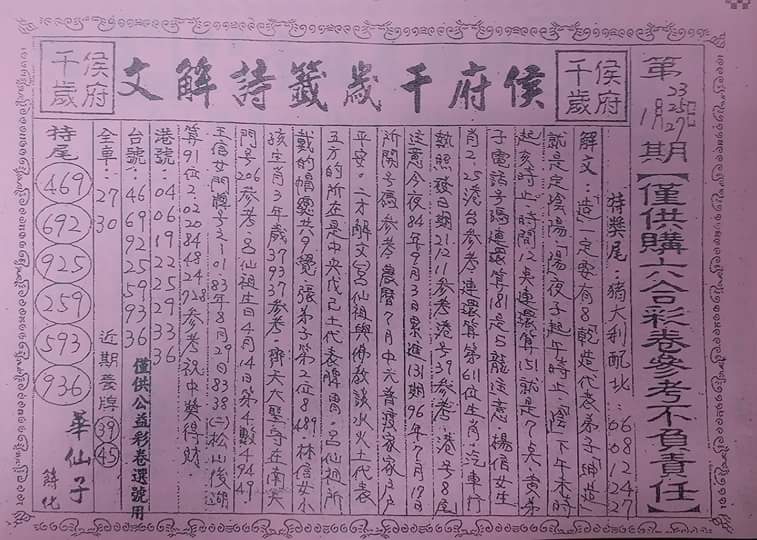 侯府千歲籤詩解文
侯府千歲
侯府千歲
第1月23 25 27日期【僅供購六合彩卷參考不負責任】
特獎尾：豬大利配北：06 08 01 12 24 27
解文：造一定要有8乾造代表弟子坤造
就是定陰陽「陽夜子起午時止」「陰下午未時
起亥時止」時間12吳連環算151就是7吳黃弟
子電話號碼連環算181是5龍注意楊信女生
肖2.25港台參考連環算第61位生肖汽車行
執照發日期2112參考港號39參考港號8尾
注意今夜84年9月3日累進131期96年7月17日
所開号碼參考農曆7月中元普渡家家戶戶
平安。二才解文宮仙祖與佛教談水火土代表
五方的所在是中央戊己土代表脾胃呂仙祖所
戴的帽總共9覺張弟子第2位8.489林信女小
孩生肖3年歲37937參考鄭大大堅守在南天
門号206參考呂仙祖生日4月14日第4數4949
王信女門牌号之101 83年8月29日8338(二)松山後湖
算91位2.020 84 84 24 928參考祝中獎得財
港號：04 06 19 22 25 29 33 36
台號：46 69 92 25 59 93 36
僅供公益彩卷選號用
全車：27 30
近期養牌 39 45
特尾 469 692 925 259 593 936
華仙子